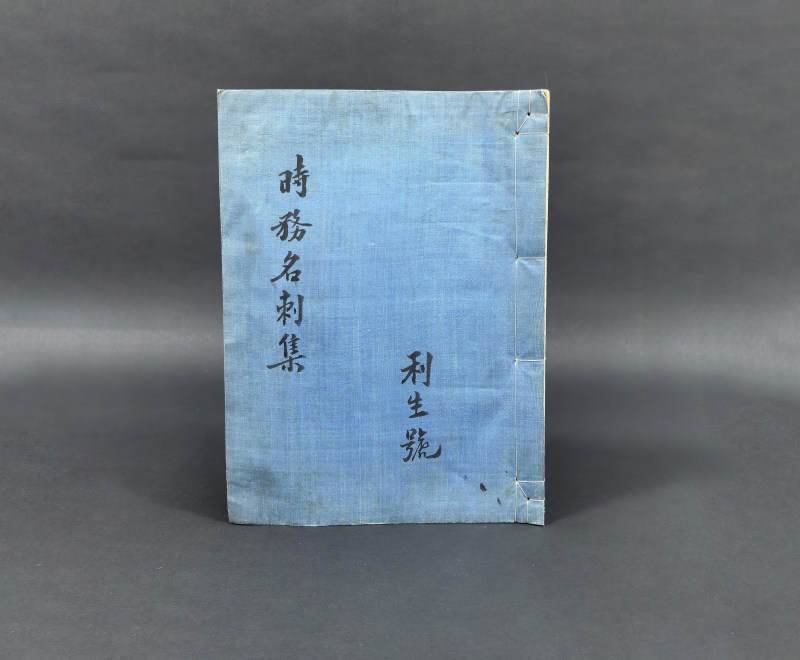 時務名刺集
利生號